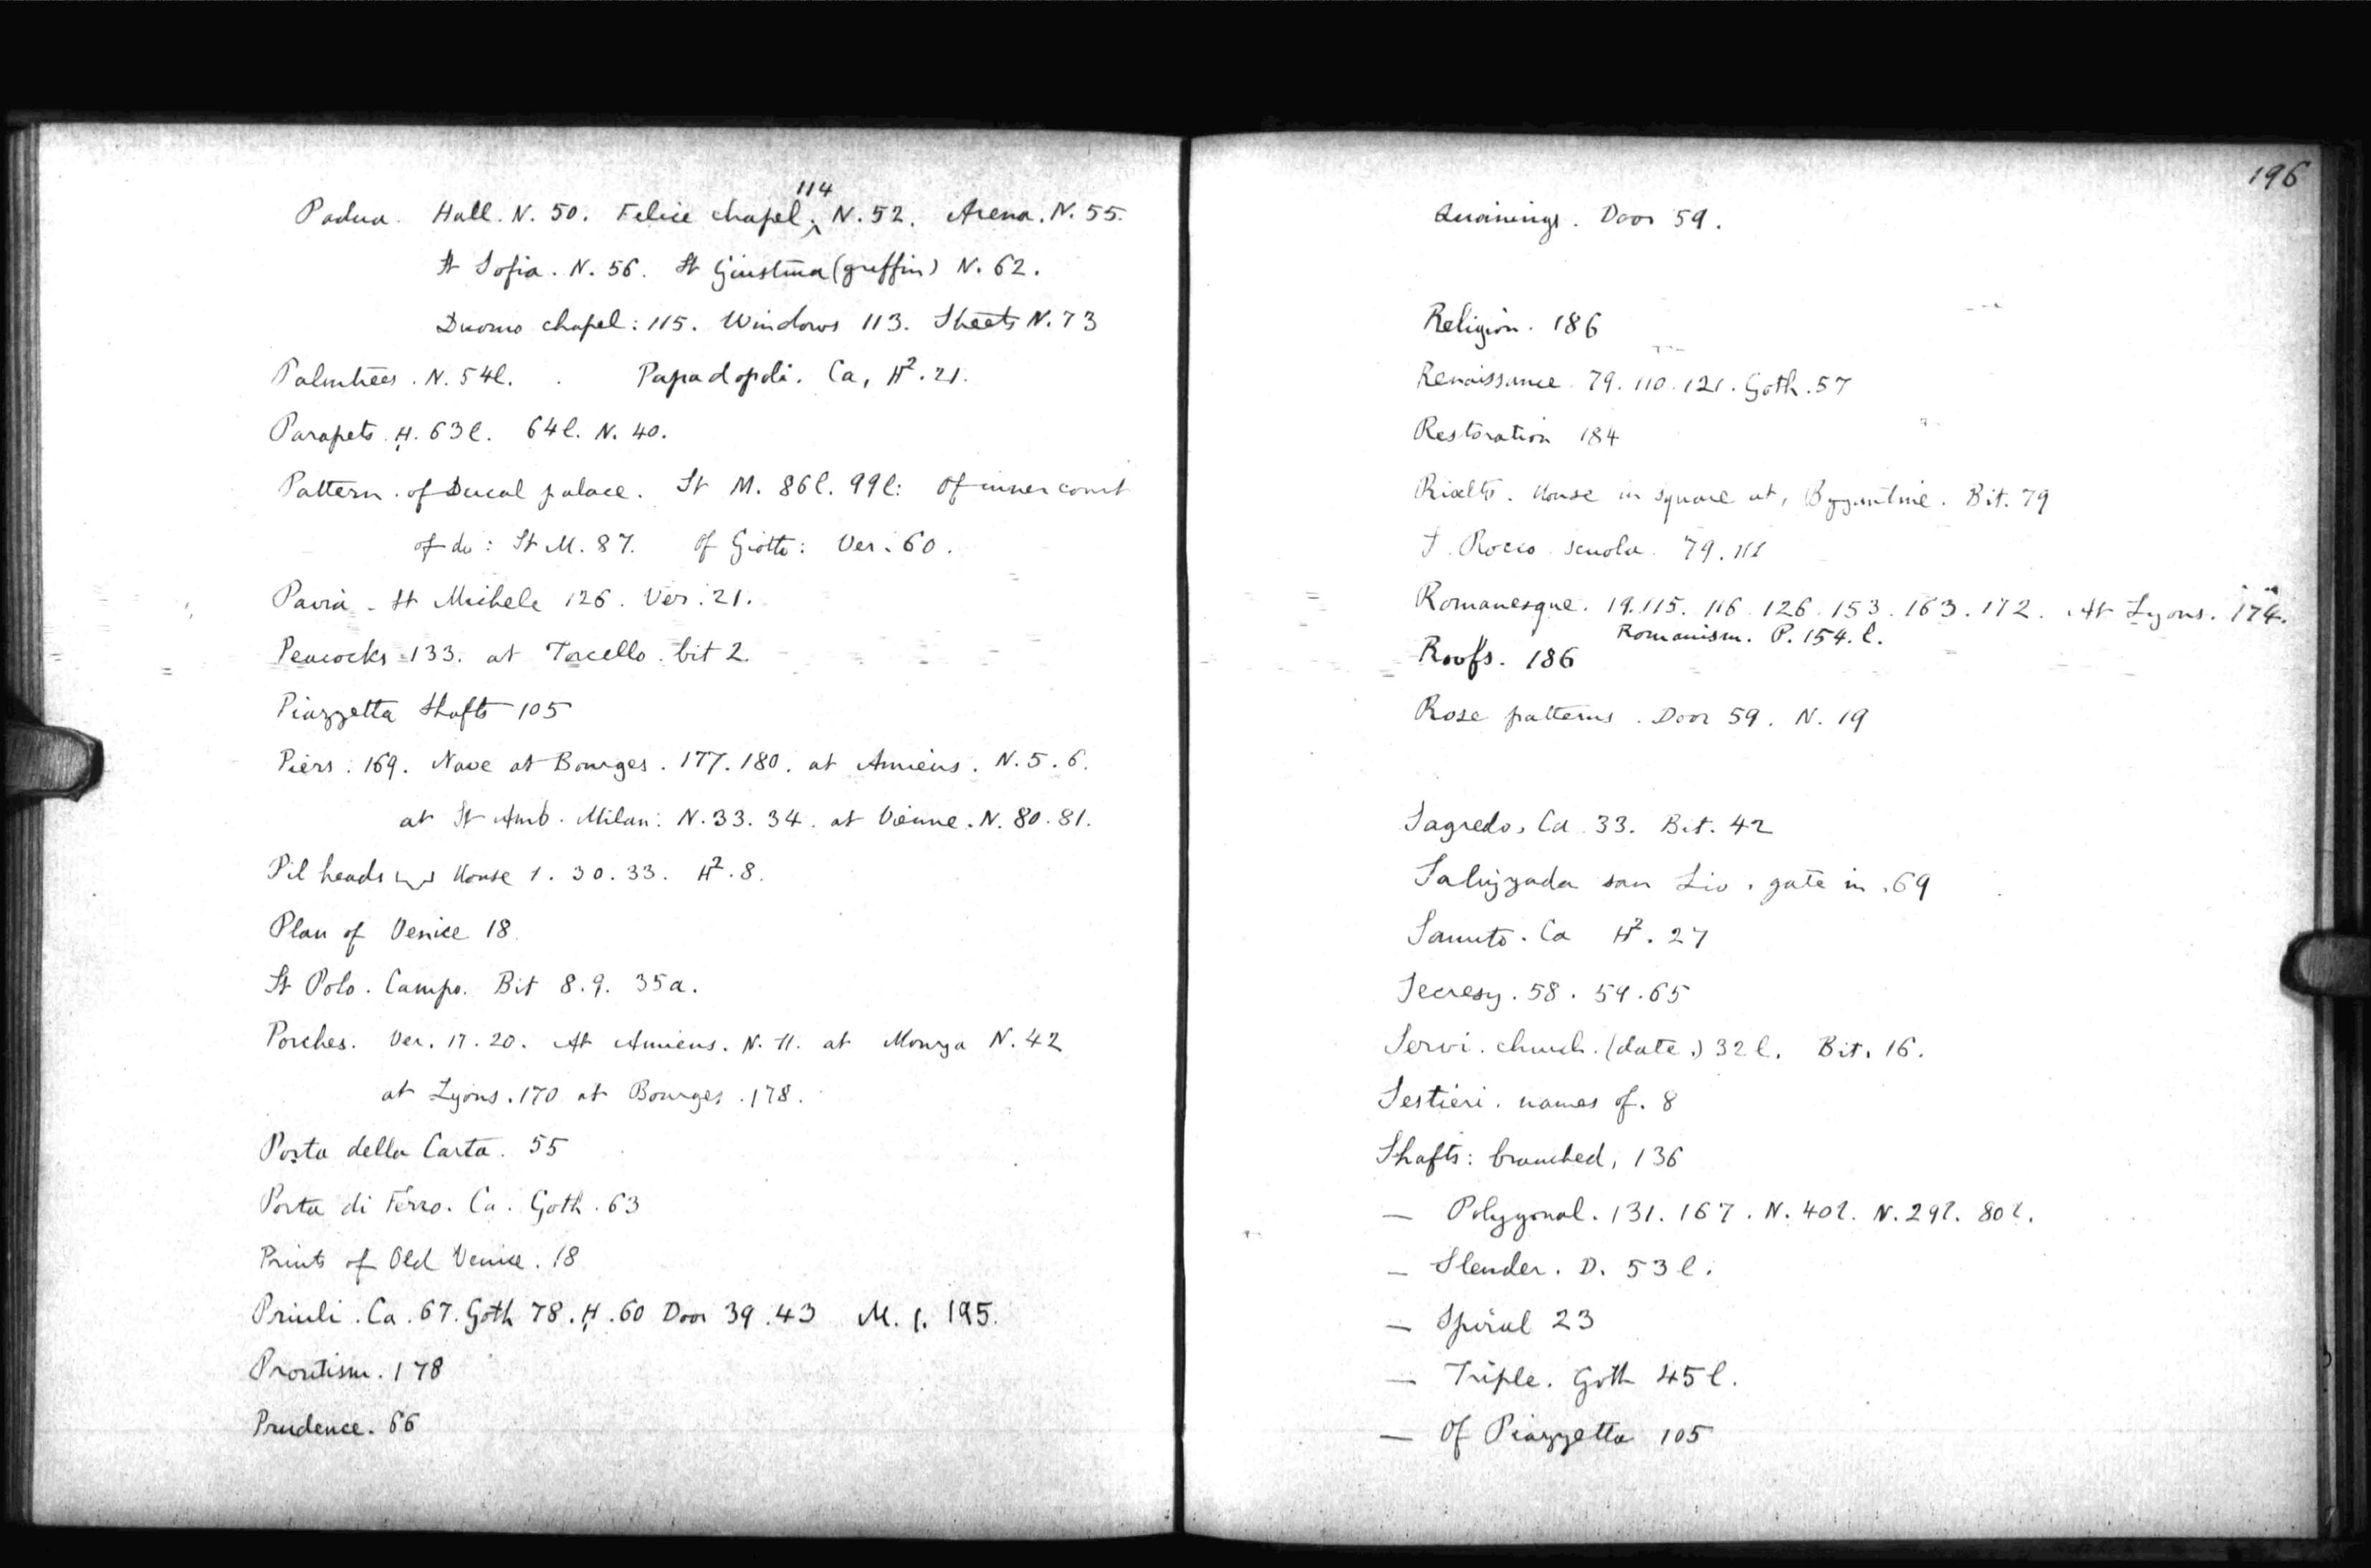 Padua. Hall. N. 50. Felice chapel, 114 N. 52. Arena. N. 55.
St Sofia. N. 56. St Giustina (griffin) N. 62.
Duomo chapel: 115. Windows 113. Sheets N. 73
Palmtrees. N. 54l. Papadopoli. Ca, H². 21.
Parapets. H. 63l. 64l. N. 40.
Pattern. of Ducal palace. St M. 86l. 99l: Of inner court
of do: St M. 87. Of Giotto: Ver. 60.
Pavia. St Michele 126. Ver. 21.
Peacocks 133. at Torcello. bit 2.
Piazzetta Shafts 105
Piers. 169. Nave at Bourges. 177. 180. at Amiens. N. 5. 6.
at St Amb. Milan: N. 33. 34. at Vienne. N. 80. 81.
Pil heads House 1. 30. 33. H². 8.
Plan of Venice 18.
St Polo. Campo. Bit 8. 9. 35a.
Porches. Ver. 17. 20. At Amiens. N. 11. at Monza N. 42
at Lyons. 170 at Bourges. 178.
Porta della Carta. 55
Porta di Ferro. Ca. Goth. 63
Prints of Old Venice. 18
Priuli. Ca. 67. Goth 78. H. 60 Door 39. 43 M. 1. 195.
Proutism. 178
Prudence. 66
196
Quoinings. Door 59.
Religion. 186
Renaissance. 79. 110. 121. Goth. 57
Restoration 184
Rialto. House in square at, Byzantine. Bit. 79
S. Rocco. scuola. 79. 111
Romanesque. 19. 115. 116. 126. 153. 163. 172. At Lyons. 174.
Romanism. P. 154. l.
Roofs. 186
Rose patterns. Door 59. N. 19
Sagredo, Ca 33. Bit. 42
Salizzada san Lio, gate in. 69
Sanuto. Ca H². 27
Secresy. 58. 59. 65
Servi. church. (date.) 32l. Bit. 16.
Sestieri. names of. 8
Shafts: branched, 136
— Polygonal. 131. 167. N. 40l. N. 29l. 80l.
— Slender. D. 53l.
— Spiral 23
— Triple. Goth 45l.
— Of Piazzetta 105